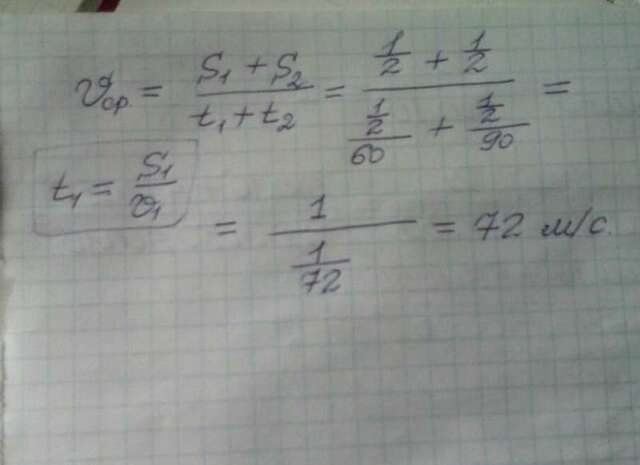 υср = (S₁ + S₂)/(t₁ + t₂) = (1/2 + 1/2)/((1/2)/60 + (1/2)/90) =
t₁ = S₁/υ₁
= 1/(1/72) = 72 м/с.